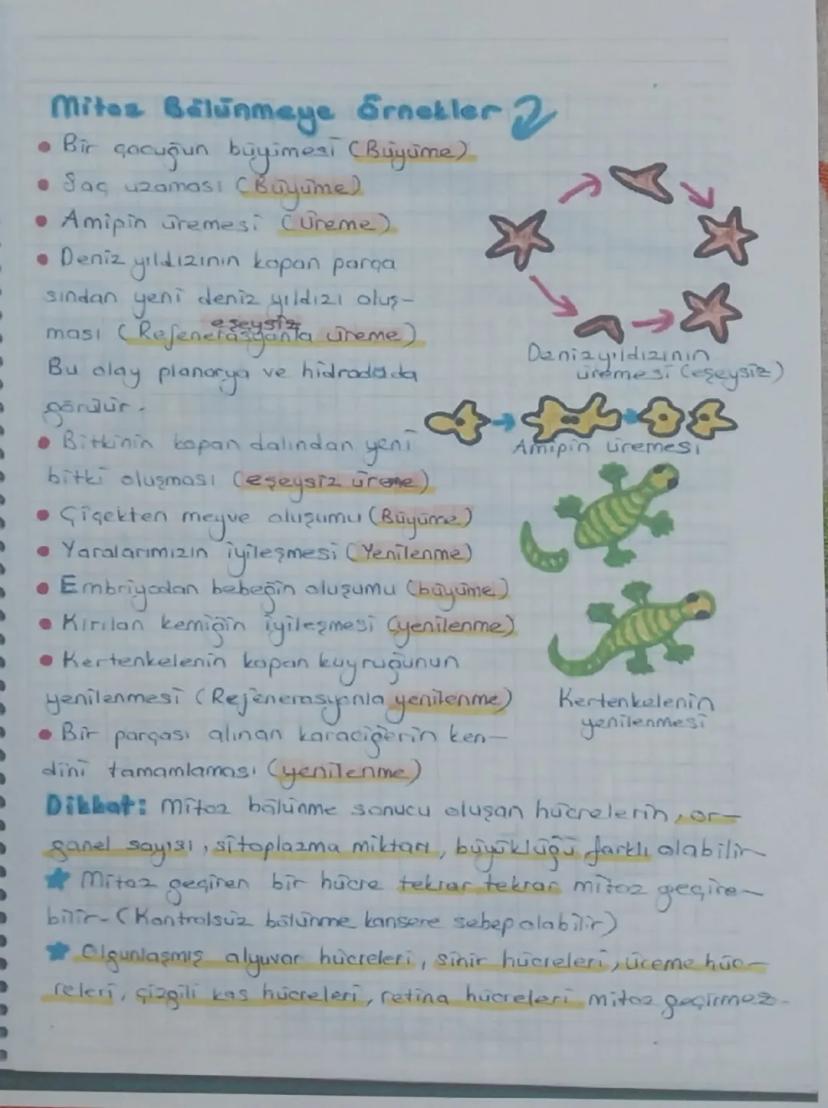 Mitoz Bölünmeye Örnekler
• Bir çocuğun büyümesi (Büyüme)
• Saç uzaması (Büyüme)
• Amipin üremesi (Üreme)
• Deniz yıldızının kopan parça
sından yeni deniz yıldızı oluş-
eşeysiz
ması (Rejenerasyonla üreme)
Bu olay planarya ve hidradada
görülür.
Deniz yıldızının
üremesi (eşeysiz)
Amipin üremesi
• Bitkinin kopan dalından yeni
bitki oluşması (eşeysiz üreme)
• Çiçekten meyve oluşumu (Büyüme)
• Yaralarımızın iyileşmesi (Yenilenme)
• Embriyodan bebeğin oluşumu (büyüme)
• Kırılan kemiğin iyileşmesi (yenilenme)
• Kertenkelenin kopan kuyruğunun
yenilenmesi (Rejenerasyonla yenilenme)
Kertenkelenin
yenilenmesi
• Bir parçası alınan karaciğerin ken-
dini tamamlaması (yenilenme)
Dikkat: Mitoz bölünme sonucu oluşan hücrelerin, or-
ganel sayısı, sitoplazma miktarı, büyüklüğü farklı olabilir
★ Mitoz geçiren bir hücre tekrar tekrar mitoz geçire-
bilir. (Kontrolsüz bölünme kansere sebep olabilir)
★ Olgunlaşmış alyuvar hücreleri, sinir hücreleri, üreme hüc-
releri, çizgili kas hücreleri, retina hücreleri mitoz geçirmez.